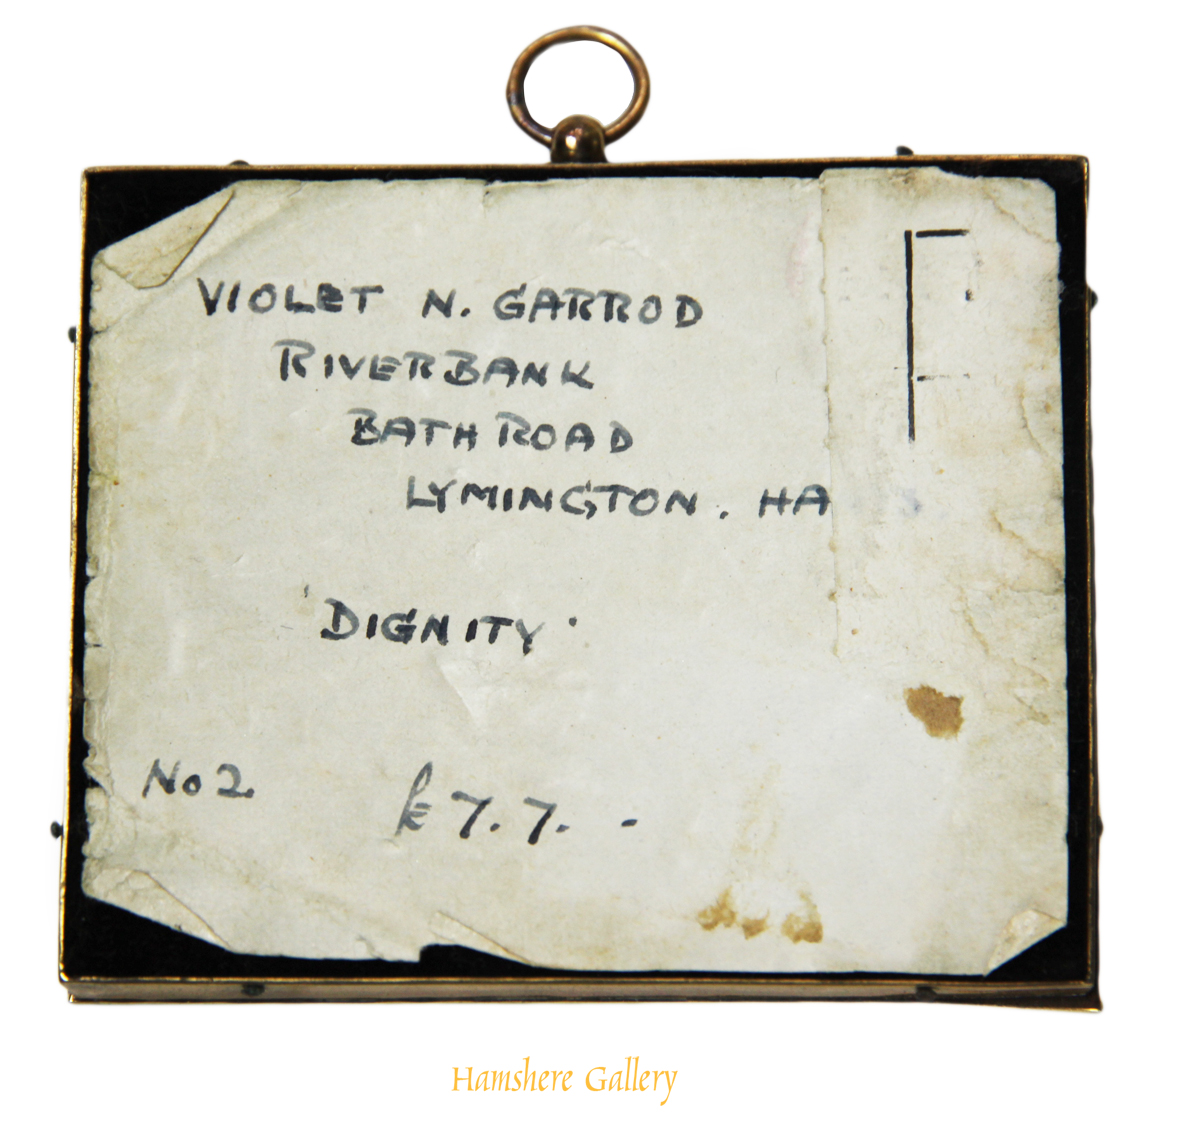 VIOLET N. GARROD
RIVERBANK
BATH ROAD
LYMINGTON. HA
'DIGNITY'
No 2. £7.7. -
Hamshere Gallery